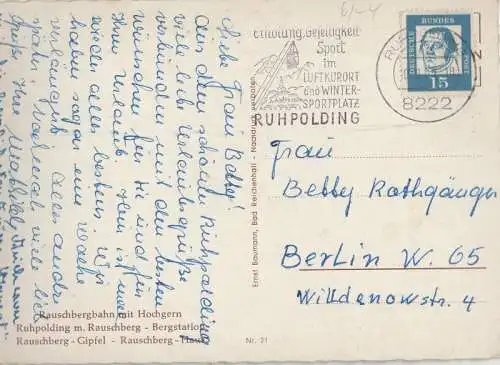 Liebe Frau Betty!
Aus dem schönen Ruhpolding
viele liebe Urlaubsgrüße
verbunden mit den besten
Wünschen für Sie und für
Ihren Urlaub. Hier ist
wieder alles bestens. Wir
haben sogar eine Woche
verlängert.
viele
Grüße Ihre
Erholung, Geselligkeit
Sport
im
LUFTKURORT
und WINTER-
SPORTPLATZ
RUHPOLDING
8222
DEUTSCHE BUNDESPOST
15
Frau
Betty Rathgänger
Berlin W. 65
Willdenowstr. 4
Ernst Baumann, Bad Reichenhall - Nachdruck verboten
Rauschbergbahn mit Hochgern
Ruhpolding m. Rauschberg - Bergstation
Rauschberg-Gipfel - Rauschberg-Haus
Nr. 21